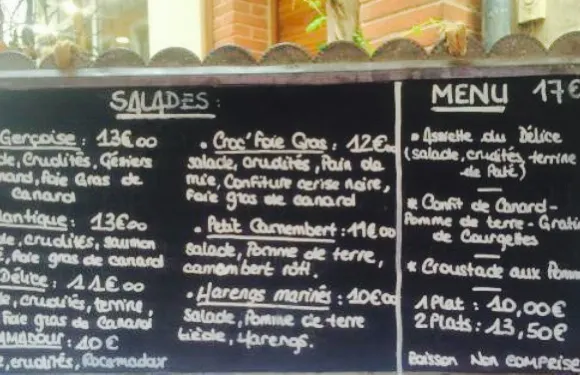 SALADES :
Gerçoise : 13€00
de, Crudités, Gésiers
nard, Foie Gras de
canard
lantique : 13€00
de, crudités, saumon
é, Foie gras de canard
Délice : 11€00
e, crudités, terrine,
Foie gras de Canard
AMADOUR : 10€
e, crudités, Rocamadour
• Croc' Foie Gras : 12€00
salade, crudités, Pain de
mie, Confiture cerise noire,
Foie gras de canard
• Petit Camembert : 11€00
salade, Pomme de terre,
camembert rôti.
• Harengs marinés : 10€00
salade, Pomme de terre
tiède, Harengs.
MENU 17€
• Assiette du Délice
(salade, crudités, terrine
de Paté)
* Confit de Canard-
Pomme de terre - Grati
de Courgettes
* Croustade aux Pomm
1 Plat : 10,00€
2 Plats : 13,50€
Boisson Non COMPRISE